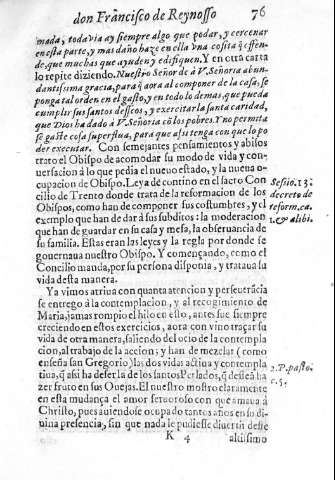 don Francisco de Reynosso 76
mada, todavia ay siempre algo que podar, y cercenar
en esta parte, y mas daño haze en ella vna cosita q̃ ofende,
que muchas que ayuden y edifiquen. Y en otra carta
lo repite diziendo. Nuestro Señor de à V. Señoria abundantissima
gracia, para q̃ aora al componer de la casa, se
ponga tal orden en el gasto, y en todo lo demas, que pueda
cumplir sus santos desseos, y exercitar la santa caridad,
que Dios ha dado à V. Señoria cõ los pobres. Y no permita
se gaste cosa superflua, para que assi tenga con que lo poder
executar. Con semejantes pensamientos y abisos
trato el Obispo de acomodar su modo de vida y conuersacion
à lo que pedia el nueuo estado, y la nueua ocupacion
de Obispo. Leya de contino en el sacro Concilio
de Trento donde trata de la reformacion de los
Obispos, como han de componer sus costumbres, y el
exemplo que han de dar à sus subditos: la moderacion
que han de guardar en su casa y mesa, la obseruancia de
su familia. Estas eran las leyes y la regla por donde se
gouernaua nuestro Obispo. Y començando, como el
Concilio manda, por su persona disponia, y trataua su
vida desta manera.
Sessio. 13.
decreto de
reform. ca.
1. & alibi.
Ya vimos arriua con quanta atencion y perseuerãcia
se entrego à la contemplacion, y al recogimiento de
Maria, jamas rompio el hilo en esto, antes fue siempre
creciendo en estos exercicios, aora con vino traçar su
vida de otra manera, saliendo del ocio de la contemplacion,
al trabajo de la accion; y han de mezclar (como
enseña san Gregorio) las dos vidas actiua y contemplatiua,
q̃ assi ha de ser la de los santos Perlados, q̃ desseã hazer
fruto en sus Ouejas. El nuestro mostro claramente
en esta mudança el amor feruoroso con que amaua à
Christo, pues auiendose ocupado tantos años en su diuina
presencia, sin que nada le pudiesse diuertir deste
2. P. pasto.
c. 5.
K 4 altissimo